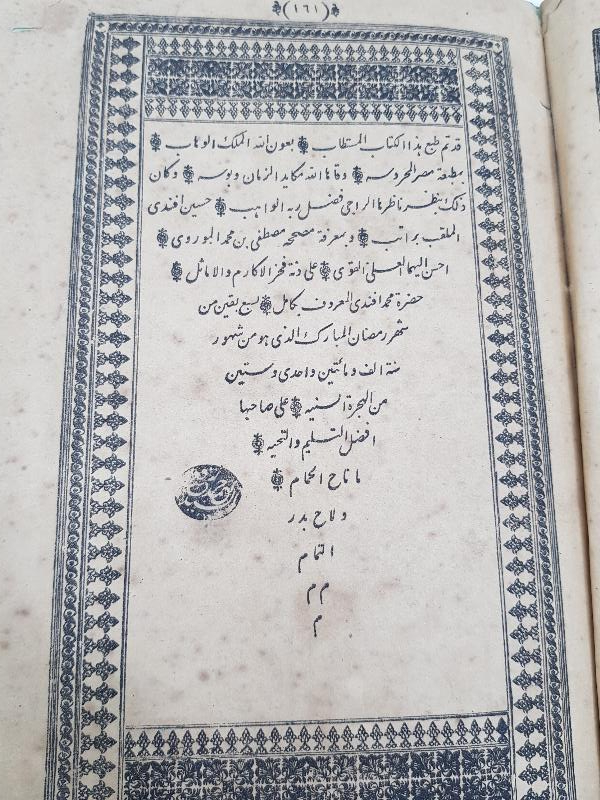 (١٦١)
قد تم طبع هذا الكتاب المستطاب بعون الله الملك الوهاب
بمطبعة مصر المحروسه وقاها الله مكايد الزمان وبوسه وكان
ذلك بنظر ناظرها الراجي فضل ربه الواهب حسين افندى
الملقب براتب وبمعرفة مصححه مصطفى بن محمد البوروى
احسن اليهما العلى القوى على ذمة فخر الاكارم والاماثل
حضرة محمد افندى المعروف بكامل لسبع بقين من
شهر رمضان المبارك الذى هو من شهور
سنة الف ومائتين واحدى وستين
من الهجرة السنيه على صاحبها
افضل التسليم والتحيه
ما ناح الحمام
ولاح بدر
التمام
م م
م